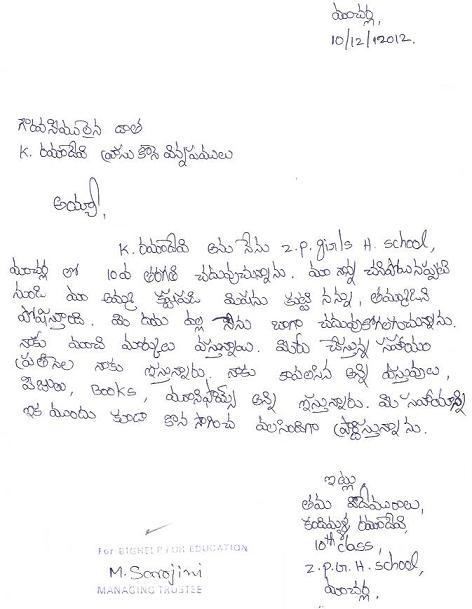 మాచర్ల,
10/12/2012.
గౌరవనీయులైన దాత
K. రమాదేవి వ్రాసుకొనే విన్నపములు
అయ్యా,
K. రమాదేవి అను నేను z.p. girls H. school,
మాచర్ల లో 10వ తరగతి చదువుచున్నాను. మా నాన్న చనిపోయినప్పటి
నుండి మా అమ్మ కష్టపడి మిషను కుట్టి నన్ను, తమ్ముడిని
పోషిస్తుంది. మీ దయ వల్ల నేను బాగా చదువుకోగలుగుచున్నాను.
నాకు మంచి మార్కులు వస్తున్నాయి. మీరు చేస్తున్న సహాయం
ప్రతినెల నాకు ఇస్తున్నారు. నాకు కావలసిన అన్ని వస్తువులు,
ఫీజులు, Books, యూనిఫామ్స్ అన్ని ఇస్తున్నారు. మీ సహాయాన్ని
ఇక ముందు కూడా కొనసాగించ వలసిందిగా ప్రార్థిస్తున్నాను.
ఇట్లు,
తమ విధేయురాలు,
రమాదేవి,
10th class,
z.p.G. H. school,
మాచర్ల.
For BIGHELP FOR EDUCATION
M. Sarojini
MANAGING TRUSTEE